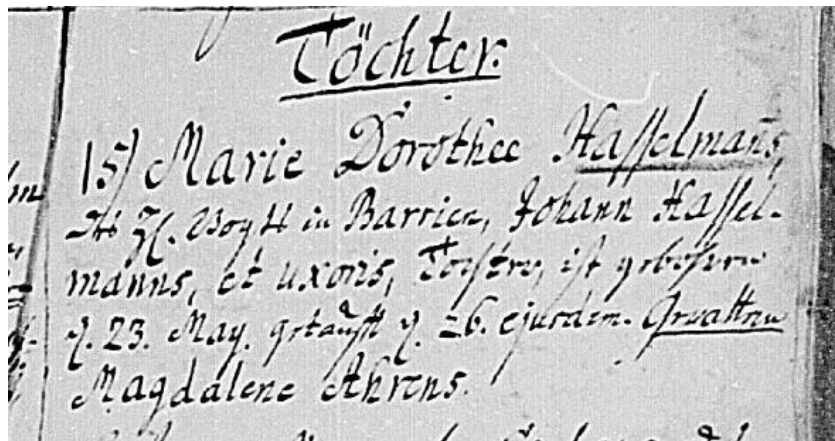 Töchter.
15) Marie Dorothee Hasselmañs,
des H. Vogts in Barrien, Johann Hassel-
manns, et uxoris, Tochter, ist gebohren
d. 23. May. getaufft d. 26. ejusdem. Gevattern
Magdalene Ahrens.